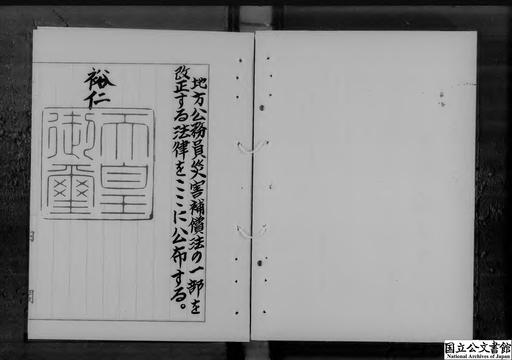 地方公務員災害補償法の一部を
改正する法律をここに公布する。
裕仁
天皇
御璽
国立公文書館
National Archives of Japan